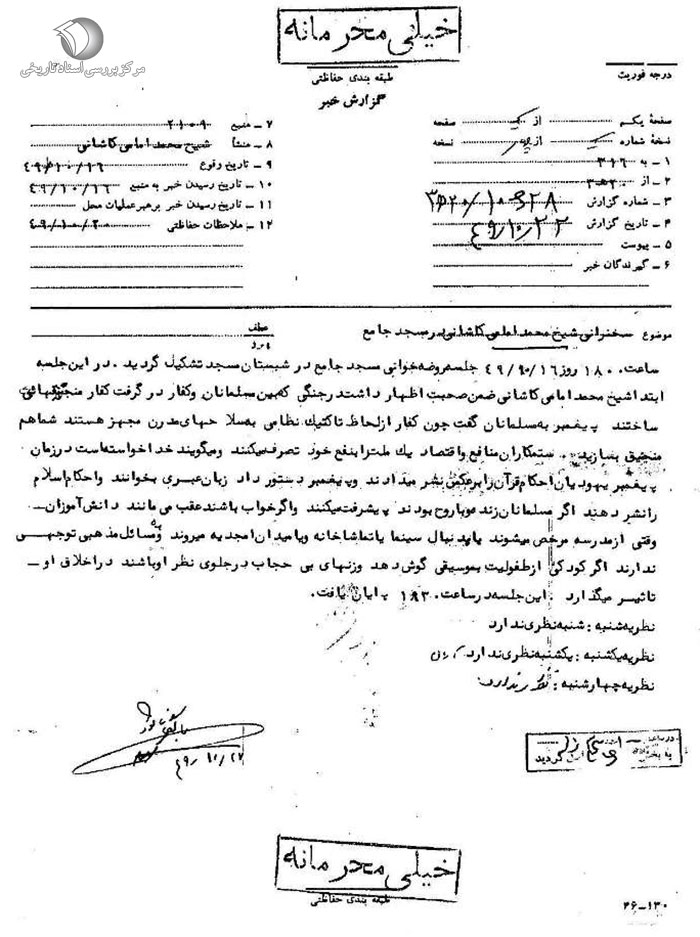 خیلی محرمانه
مرکز بررسی اسناد تاریخی
طبقه بندی حفاظتی
درجه فوریت
گزارش خبر
صفحهٔ یکم از یک صفحه
نسخهٔ شماره از نسخه
۱ ـ به ۳۱۶
۲ ـ از ۳۰ه۲
۳ ـ شماره گزارش
۴ ـ تاریخ گزارش ۴۹/۱۰/۲۲
۵ ـ پیوست
۶ ـ گیرندگان خبر
۷ ـ منبع ۲۱۰۹
۸ ـ منشأ شیخ محمد امامی کاشانی
۹ ـ تاریخ وقوع ۴۹/۱۰/۱۶
۱۰ ـ تاریخ رسیدن خبر به منبع ۴۹/۱۰/۱۶
۱۱ ـ تاریخ رسیدن خبر برهبر عملیات محل
۱۲ ـ ملاحظات حفاظتی ۴۹/۱۰/۲۰
موضوع سخنرانی شیخ محمد امامی کاشانی در مسجد جامع
عطف
ساعت ۱۸۰۰ روز ۴۹/۱۰/۱۶ جلسه روضه خوانی مسجد جامع در شبستان مسجد تشکیل گردید . در این جلسه
ابتدا شیخ محمد امامی کاشانی ضمن صحبت اظهار داشت در جنگی که بین مسلمانان و کفار در گرفت کفار منجنیقهائی
ساختند پیغمبر به مسلمانان گفت چون کفار از لحاظ تاکتیک نظامی به سلاحهای مدرن مجهز هستند شما هم
منجنیق بسازید . ستمکاران منافع و اقتصاد یک ملت را بنفع خود تصرف میکنند و میگویند خدا خواسته است در زمان
پیغمبر یهودیان احکام قرآن را برعکس نشر میدادند و پیغمبر دستور داد زبان عبری بخوانند و احکام اسلام
را نشر دهند اگر مسلمانان زنده و با روح بودند پیشرفت میکنند و اگر خواب باشند عقب می مانند دانش آموزان ـ
وقتی از مدرسه مرخص میشوند یا بدنبال سینما یا تماشاخانه و یا میدان امجدیه میروند و به مسائل مذهبی توجهی
ندارند اگر کودکی از طفولیت بموسیقی گوش دهد و زنهای بی حجاب در جلوی نظر او باشند در اخلاق او ـ
تاثیر میگذارد . این جلسه در ساعت ۱۹۳۰ پایان یافت .
نظریه شنبه : شنبه نظری ندارد
نظریه یکشنبه : یکشنبه نظری ندارد
نظریه چهارشنبه : نظری ندارد
۴۹/۱۰/۲۷
در ساعت
به بخش گردید
خیلی محرمانه
طبقه بندی حفاظتی
۲۶ـ۱۳۰